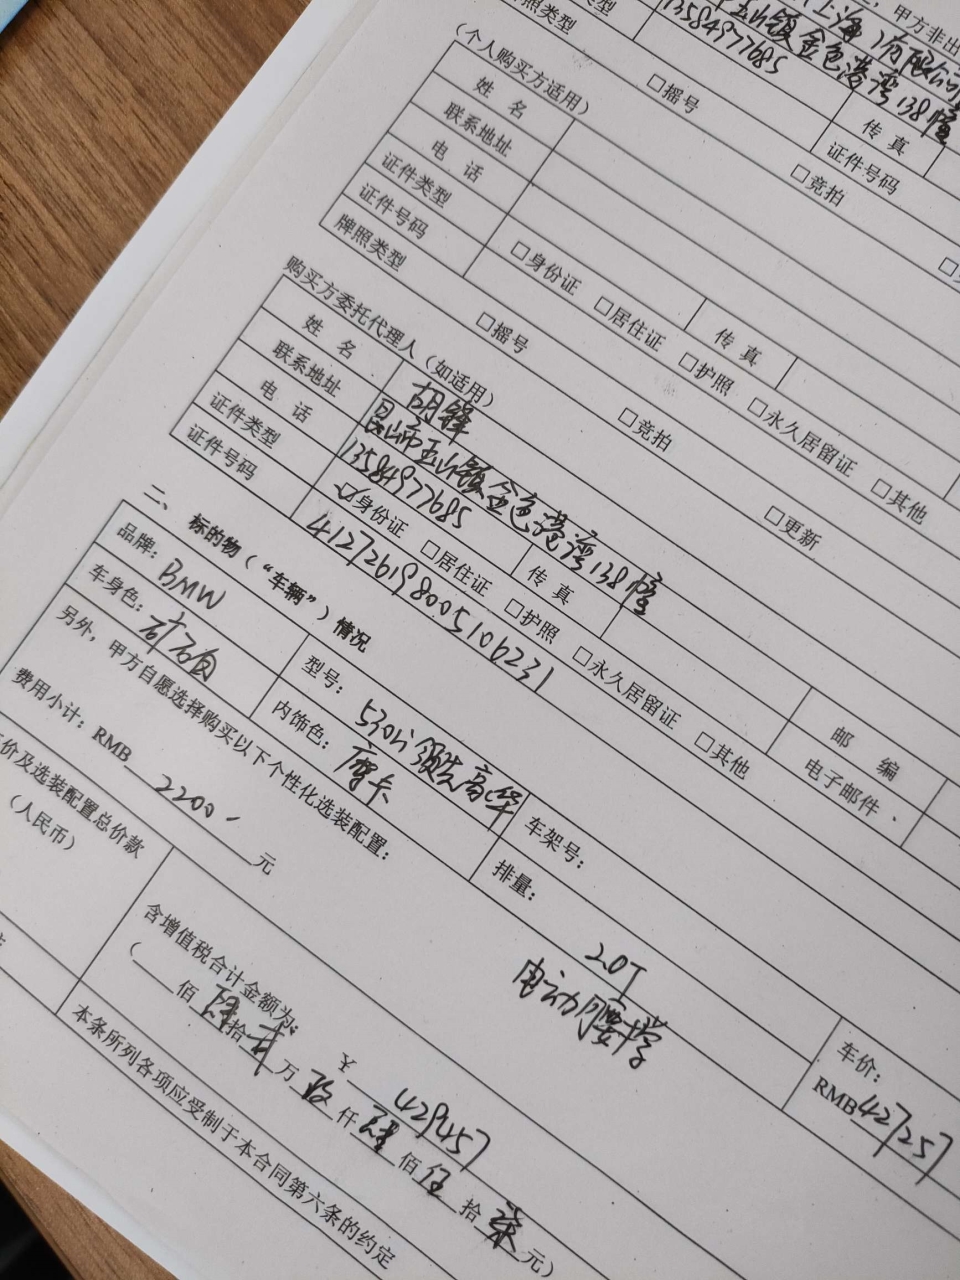 (上海)有限公司
玉山镇金色港湾138幢
13584977685
传 真
□摇号
证件号码
□竞拍
(个人购买方适用)
姓 名
联系地址
电 话
证件类型
□身份证 □居住证 □护照 □永久居留证 □其他
证件号码
传 真
牌照类型
□摇号
□竞拍
□更新
购买方委托代理人(如适用)
姓 名
胡锋
联系地址
昆山市玉山镇金色港湾138幢
电 话
13584977685
传 真
邮 编
证件类型
☑身份证 □居住证 □护照 □永久居留证 □其他
电子邮件
证件号码
412726198005106231
二、 标的物(“车辆”)情况
品牌: BMW
型号: 530Li 领先 豪华
车架号:
车身色: 矿石白
内饰色: 摩卡
排量: 2.0T
车价:
RMB 427257
另外,甲方自愿选择购买以下个性化选装配置:
电动腰撑
费用小计: RMB 2200 元
价及选装配置总价款
(人民币)
含增值税合计金额为: ¥ 429457
佰 拾 万 仟 佰 伍 拾 柒 元)
本条所列各项应受制于本合同第六条的约定